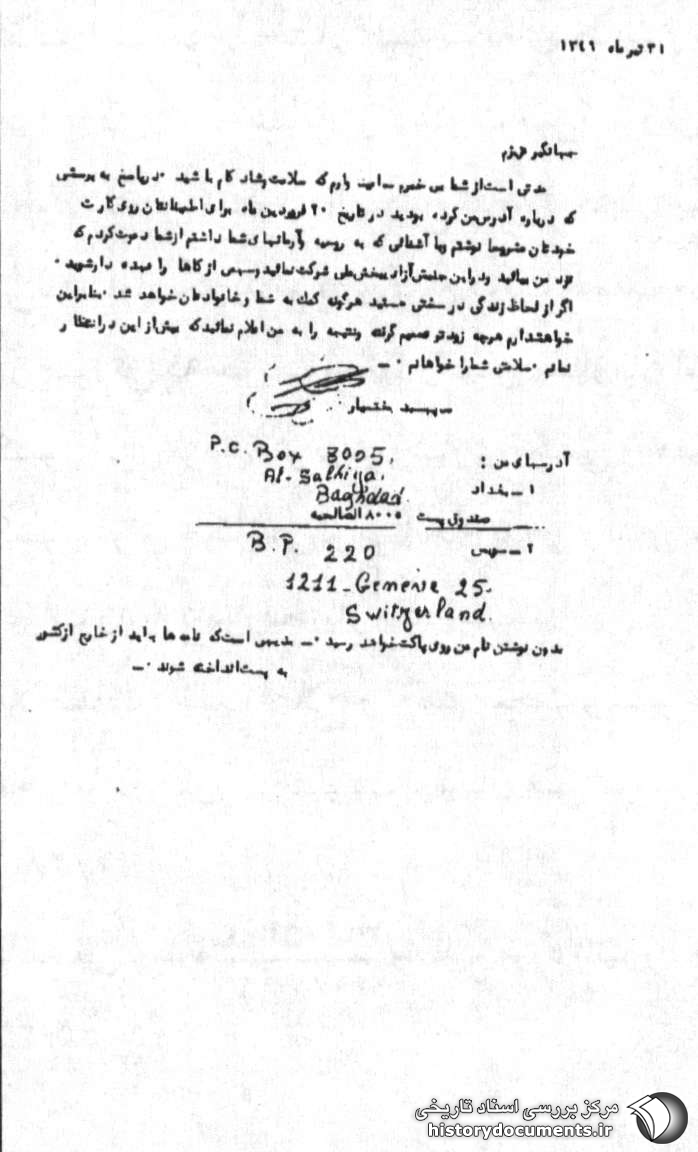 ۳۱ تیر ماه ۱۳۴۹
جهانگیر عزیزم
مدتی است از شما بی خبرم امید وارم که سلامت و شاد کام باشید ۰ در پاسخ به پرسشی
که درباره آدرس من کرده بودید در تاریخ ۲۰ فروردین ماه برای اطمینانتان روی کارت
خودتان مشروحا نوشتم وبا آشنائی که به روحیه وآرمانهای شما داشتم از شما دعوت کردم که
نزد من بیائید و در این جنبش آزادیبخش ملی شرکت نمائید وسهمی از کارها را عهده دار شوید ۰
اگر از لحاظ زندگی در سختی هستید هرگونه کمک به شما و خانواده تان خواهد شد ۰ بنابراین
خواهشدارم هرچه زودتر تصمیم گرفته ونتیجه را به من اعلام نمائید که بیش از این در انتظار
نمانم ۰ سلامتی شما را خواهانم ۰ –
سپهبد بختیار
آدرسهای من :
۱ – بغداد
P.O. Box 8005.
Al-Salhiya.
Baghdad.
صندوق پست ۸۰۰۵ الصالحیه
۲ – سویس
B.P. 220
1211-Genève 25.
Switzerland.
بدون نوشتن نام من روی پاکت خواهد رسید ۰ – بدیهی است که نامه ها باید از خارج از کشور
به پست انداخته شوند ۰ –
مرکز بررسی اسناد تاریخی
historydocuments.ir